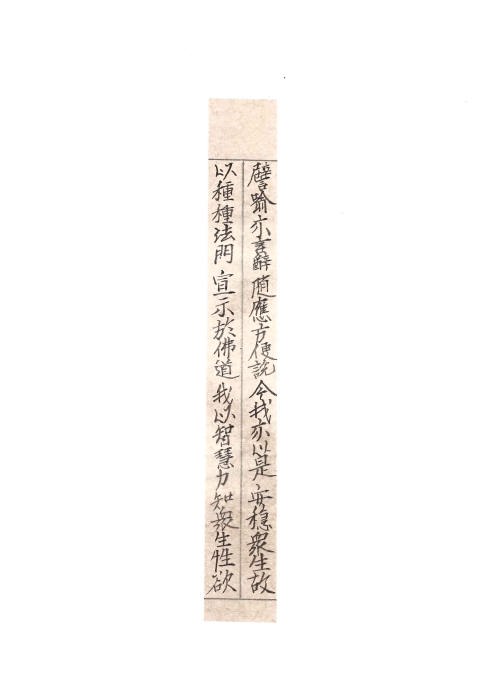 譬喩亦言辭 随應方便說 今我亦如是 安穏衆生故
以種種法門 宣示於佛道 我以智慧力 知衆生性欲